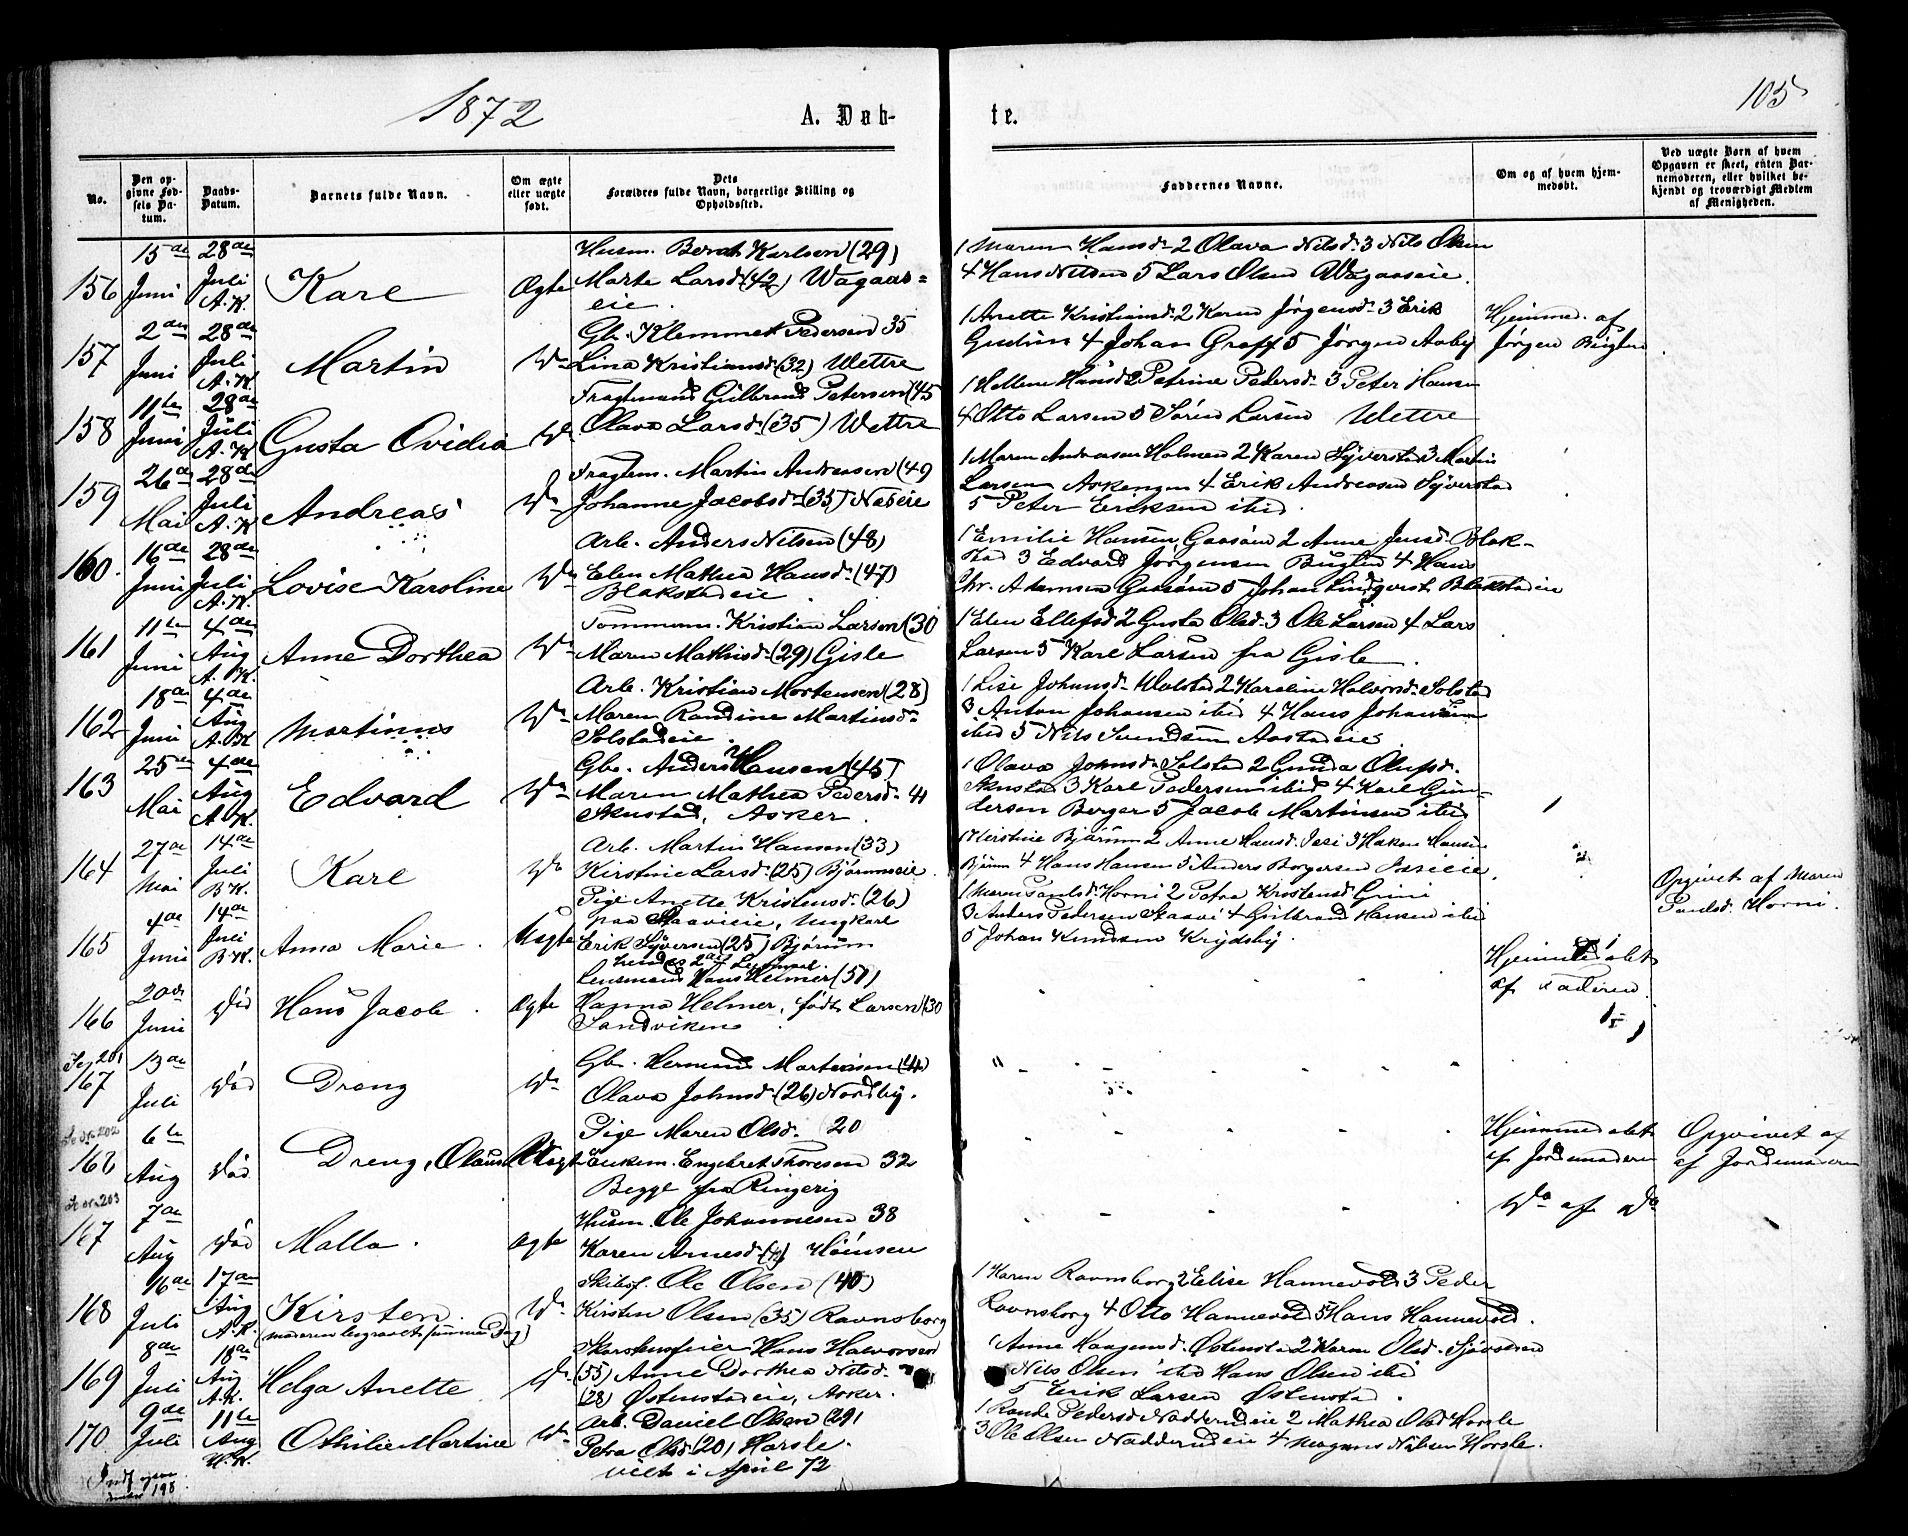 1872
A. Døb-
te.
105
No.
Den op-
givne Fød-
sels Da-
tum.
Daabs-
Datum.
Barnets fulde Navn.
Om ægte
eller uægte
født.
Dets
Forældres fulde Navn, borgerlige Stilling og
Opholdssted.
Faddernes Navne.
Om og af hvem hjem-
medøbt.
Ved uægte Børn af hvem
Opgaven er skeet, enten Bar-
nemoderen, eller hvilket be-
kjendt og troværdigt Medlem
af Menigheden.
156
15de
Juni
28de
Juli
A.K.
Karl
Ægte
Husm. Bernt Karlsen (29)
Marte Larsd. (42) Wagaas-
eie.
1 Maren Hansd. 2 Olava Nilsd. 3 Nils Olsen
4 Hans Nilsen 5 Lars Olsen Wagaaseie.
157
2den
Juni
28de
Juli
A.K.
Martin
Do
Gb. Klemmet Pedersen 35
Lina Kristiansd. (32) Wettre
1 Anette Kristiansd. 2 Karen Jørgensd. 3 Erik
4 Johan Graff 5 Jørgen Aaby
Hjemmed. af
Jørgen
158
11te
Juni
28de
Juli
A.K.
Gusta Ovidia
Do
Fragtmand Gulbrand Petersen (45
Olava Larsd. (35) Wettre
1 Hellene Hansd. 2 Petrine Pedersd. 3 Peter Hansen
4 Otto Larsen 5 Søren Larsen Wettre
159
26de
Mai
28de
Juli
A.K.
Andreas
Do
Fragtm. Martin Andreasen (49
Johanne Jacobsd. (35) Næseie
1 Maren Andreasen Holmen 2 Karen Syverstad 3 Martin
Larsen Askengen 4 Erik Andreasen Syverstad
5 Peter Eriksen ibid.
160.
16de
Juni
28de
Juli
A.K.
Lovise Karoline
Do
Arb. Anders Nilsen (48)
Elen Mathea Hansd. (47)
Blakstadeie
1 Emilie Hansen, Gaasøen 2 Anne Jensd. Blak-
stad 3 Edvard Jørgensen 4 Hans
Chr. Adamsen Gaasøen 5 Johan Lindqvist Blakstadeie
161
11te
Juni
4de
Aug
A.K.
Anne Dorthea
Do
Tømmerm. Kristian Larsen (30
Maren Mathisd. (29) Gisle
1 Elen Ellefsd. 2 Gusta Olsd. 3 Ole Larsen 4 Lars
Larsen 5 Karl Larsen fra Gisle.
162
18de
Juni
4de
Aug
A.K.
Martinus
Do
Arb. Kristian Mortensen (28)
Maren Randine Martinsd.
Solstadeie.
1 Lise Johansd. 2 Karoline Halvorsd. Solstad
3 Anton Johansen ibid 4 Hans Johansen
ibid 5 Nils Svendsen
163
25de
Mai
4de
Aug
A.K.
Edvard
Do
Gb. Anders Hansen (45)
Maren Mathea Pedersd. 41
Skustad, Asker.
1 Olava Johnsd. Solstad 2 Gunda Olufsd.
Skustad 3 Karl Pedersen ibid 4 Karl Gun-
dersen Berger 5 Jacob Martinsen ibid
164
27de
Mai
14de
Juli
B.K.
Karl
Do
Arb. Martin Hansen (33)
Kirstine Larsd. (25) Bjørumeie.
1 Kirstine Bjørum 2 Anne Hansd. 3 Haken Hansen
Bjørum 4 Hans Hansen 5 Anders Borgersen
165
4de
Juni
14de
Juli
B.K.
Anna Marie.
Uægte
Pige Anette Kristensd. (26)
paa Skaavieie, Ungkarl
Erik Syversen (25) Bjørum
hendes 2det Leiermaal.
1 Maren Paulsd. Horni 2 Petra Kristensd. Grini
3 Anders Pedersen Skaavi 4 Gulbrand Hansen ibid
5 Johan Knudsen Krydsby.
Opgivet af Maren
Paulsd. Horni.
166
20de
Juni
Død
Hans Jacob.
Ægte
Lensmand Hans Helmer (51)
Hanna Helmer, født Larsen (30
Sandviken
Hjemmedøbt
af Faderen.
Se 201
167
13de
Juli
Død
Dreng
Do
Gb. Herman Martinsen (41)
Olava Johnsd. (26) Nordby.
Se Nr. 202
168
6te
Aug
Død
Dreng, Olaus
Uægte
Pige Maren Olsd. 20
Enkem. Engebret Thoresen 32
Begge fra Ringerig
Hjemmedøbt
af Jordemoderen
Opgivet af
af Jordemoderen
Se Nr. 203
167
7de
Aug
Død
Malla.
Ægte
Husm. Ole Johannesen 38
Karen Arnesd. (41)
Do af Do
168
16de
Juli
17de
Aug
A.K.
Kirsten
(moderen begravet samme Dag)
Do
Skibsf. Ole Olsen (40)
Kirsten Olsen (35) Ravnsborg
1 Karen Ravnsborg 2 Elise Hannevold 3 Peder
Ravnsborg 4 Otto Hannevold 5 Hans Hannevold.
169
8de
Juli
18de
Aug
A.K.
Helga Anette
Do
Skorstensfeier Hans Halvorsen
(55) Anne Dorthea Nilsd.
(28) Østenstadeie, Asker.
1 Anne Haagensd. Østenstad 2 Karen Olsd.
Nils Olsen ibid Hans Olsen ibid
5 Erik Larsen Østenstad.
170
9de
Juli
11te
Aug
H.K.
Othilie Martine
Do
Arb. Daniel Olsen (29)
Petra Olsd. (20) Harsle.
viet i April 72
1 Rande Pedersd. Nadderudeie 2 Mathea Olsd. Horsle
3 Ole Olsen Nadderudeie 4 Mogens Nilsen Horsle.
198